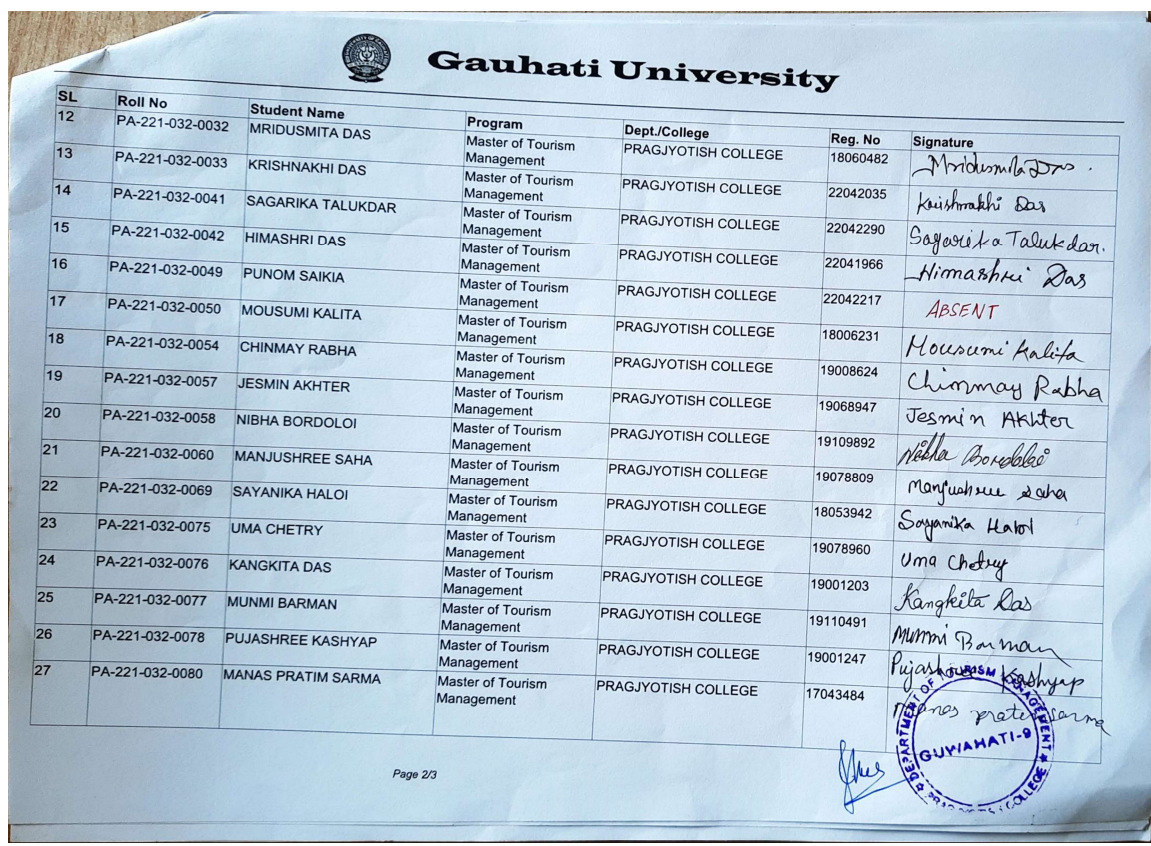 Gauhati University
SL Roll No Student Name Program Dept./College Reg. No Signature
12 PA-221-032-0032 MRIDUSMITA DAS Master of Tourism Management PRAGJYOTISH COLLEGE 18060482 Mridusmita Das.
13 PA-221-032-0033 KRISHNAKHI DAS Master of Tourism Management PRAGJYOTISH COLLEGE 22042035 Krishnakhi Das
14 PA-221-032-0041 SAGARIKA TALUKDAR Master of Tourism Management PRAGJYOTISH COLLEGE 22042290 Sagarika Talukdar.
15 PA-221-032-0042 HIMASHRI DAS Master of Tourism Management PRAGJYOTISH COLLEGE 22041966 Himashri Das
16 PA-221-032-0049 PUNOM SAIKIA Master of Tourism Management PRAGJYOTISH COLLEGE 22042217 ABSENT
17 PA-221-032-0050 MOUSUMI KALITA Master of Tourism Management PRAGJYOTISH COLLEGE 18006231 Mousumi Kalita
18 PA-221-032-0054 CHINMAY RABHA Master of Tourism Management PRAGJYOTISH COLLEGE 19008624 Chinmay Rabha
19 PA-221-032-0057 JESMIN AKHTER Master of Tourism Management PRAGJYOTISH COLLEGE 19068947 Jesmin Akhter
20 PA-221-032-0058 NIBHA BORDOLOI Master of Tourism Management PRAGJYOTISH COLLEGE 19109892 Nibha Bordoloi
21 PA-221-032-0060 MANJUSHREE SAHA Master of Tourism Management PRAGJYOTISH COLLEGE 19078809 Manjushree Saha
22 PA-221-032-0069 SAYANIKA HALOI Master of Tourism Management PRAGJYOTISH COLLEGE 18053942 Sayanika Haloi
23 PA-221-032-0075 UMA CHETRY Master of Tourism Management PRAGJYOTISH COLLEGE 19078960 Uma Chetry
24 PA-221-032-0076 KANGKITA DAS Master of Tourism Management PRAGJYOTISH COLLEGE 19001203 Kangkita Das
25 PA-221-032-0077 MUNMI BARMAN Master of Tourism Management PRAGJYOTISH COLLEGE 19110491 Munmi Barman
26 PA-221-032-0078 PUJASHREE KASHYAP Master of Tourism Management PRAGJYOTISH COLLEGE 19001247 Pujashree Kashyap
27 PA-221-032-0080 MANAS PRATIM SARMA Master of Tourism Management PRAGJYOTISH COLLEGE 17043484 Manas pratim sarma
DEPARTMENT OF TOURISM MANAGEMENT
GUWAHATI-9
COLLEGE
Page 2/3